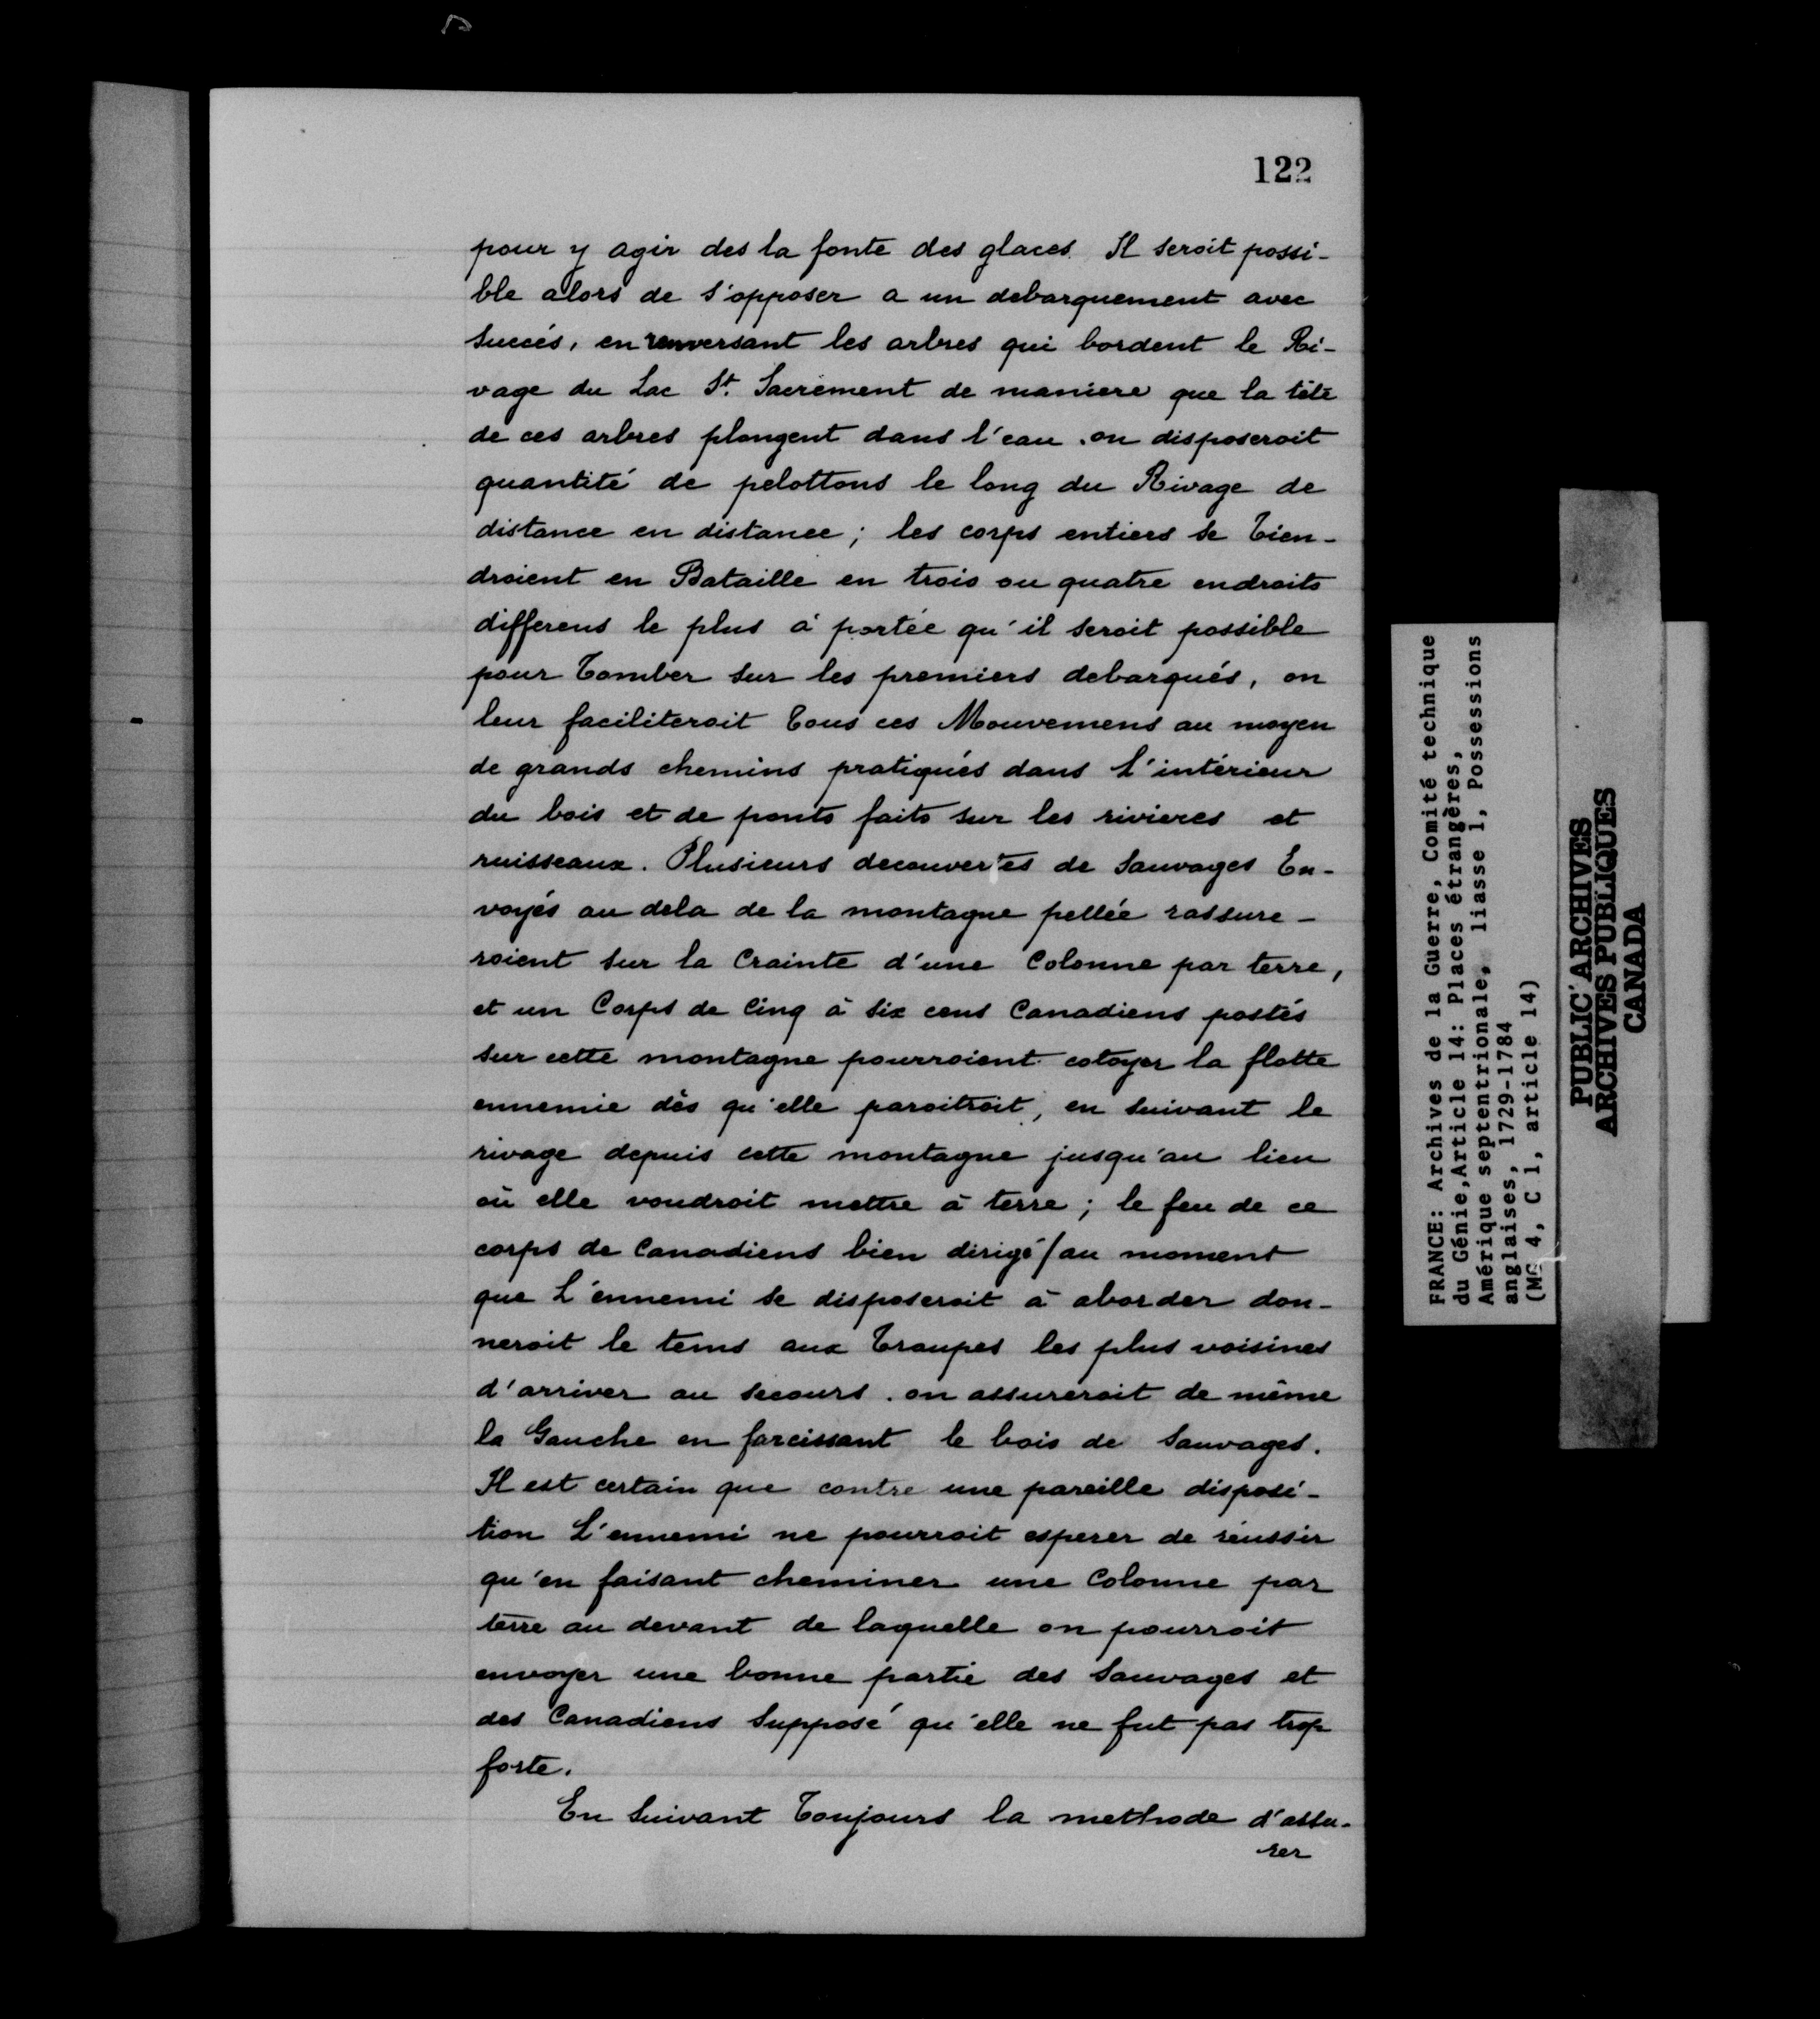 122
pour y agir des la fonte des glaces. Il seroit possi-
ble alors de s'opposer a un debarquement avec
succés, en renversant les arbres qui bordent le Ri-
vage du Lac St. Sacrement de maniere que la tête
de ces arbres plongent dans l'eau. on disposeroit
quantité de pelottons le long du Rivage de
distance en distance; les corps entiers se tien-
droient en Bataille en trois ou quatre endroits
differens le plus à portée qu'il seroit possible
pour tomber sur les premiers debarqués, on
leur faciliteroit tous ces Mouvemens au moyen
de grands chemins pratiqués dans l'intérieur
du bois et de ponts faits sur les rivieres et
ruisseaux. Plusieurs decouvertes de Sauvages En-
voyés au dela de la montagne pellée rassure-
roient sur la Crainte d'une Colonne par terre,
et un Corps de Cinq à six cens Canadiens postés
sur cette montagne pourroient cotoyer la flotte
ennemie dès qu'elle paroitroit, en suivant le
rivage depuis cette montagne jusqu'au lieu
où elle voudroit mettre à terre; le feu de ce
corps de Canadiens bien dirigé/au moment
que L'ennemi se disposeroit à aborder don-
neroit le tems aux troupes les plus voisines
d'arriver au secours. on assureroit de même
la Gauche en farcissant le bois de Sauvages.
Il est certain que contre une pareille disposi-
tion L'ennemi ne pourroit esperer de réussir
qu'en faisant cheminer une Colonne par
terre au devant de laquelle on pourroit
envoyer une bonne partie des Sauvages et
des Canadiens Supposé qu'elle ne fut pas trop
forte.
En Suivant Toujours la methode d'assu-
rer
FRANCE: Archives de la Guerre, Comité technique
du Génie,Article 14: Places étrangères,
Amérique septentrionale, liasse 1, Possessions
anglaises, 1729-1784
(MG 4, C 1, article 14)
PUBLIC ARCHIVES
ARCHIVES PUBLIQUES
CANADA